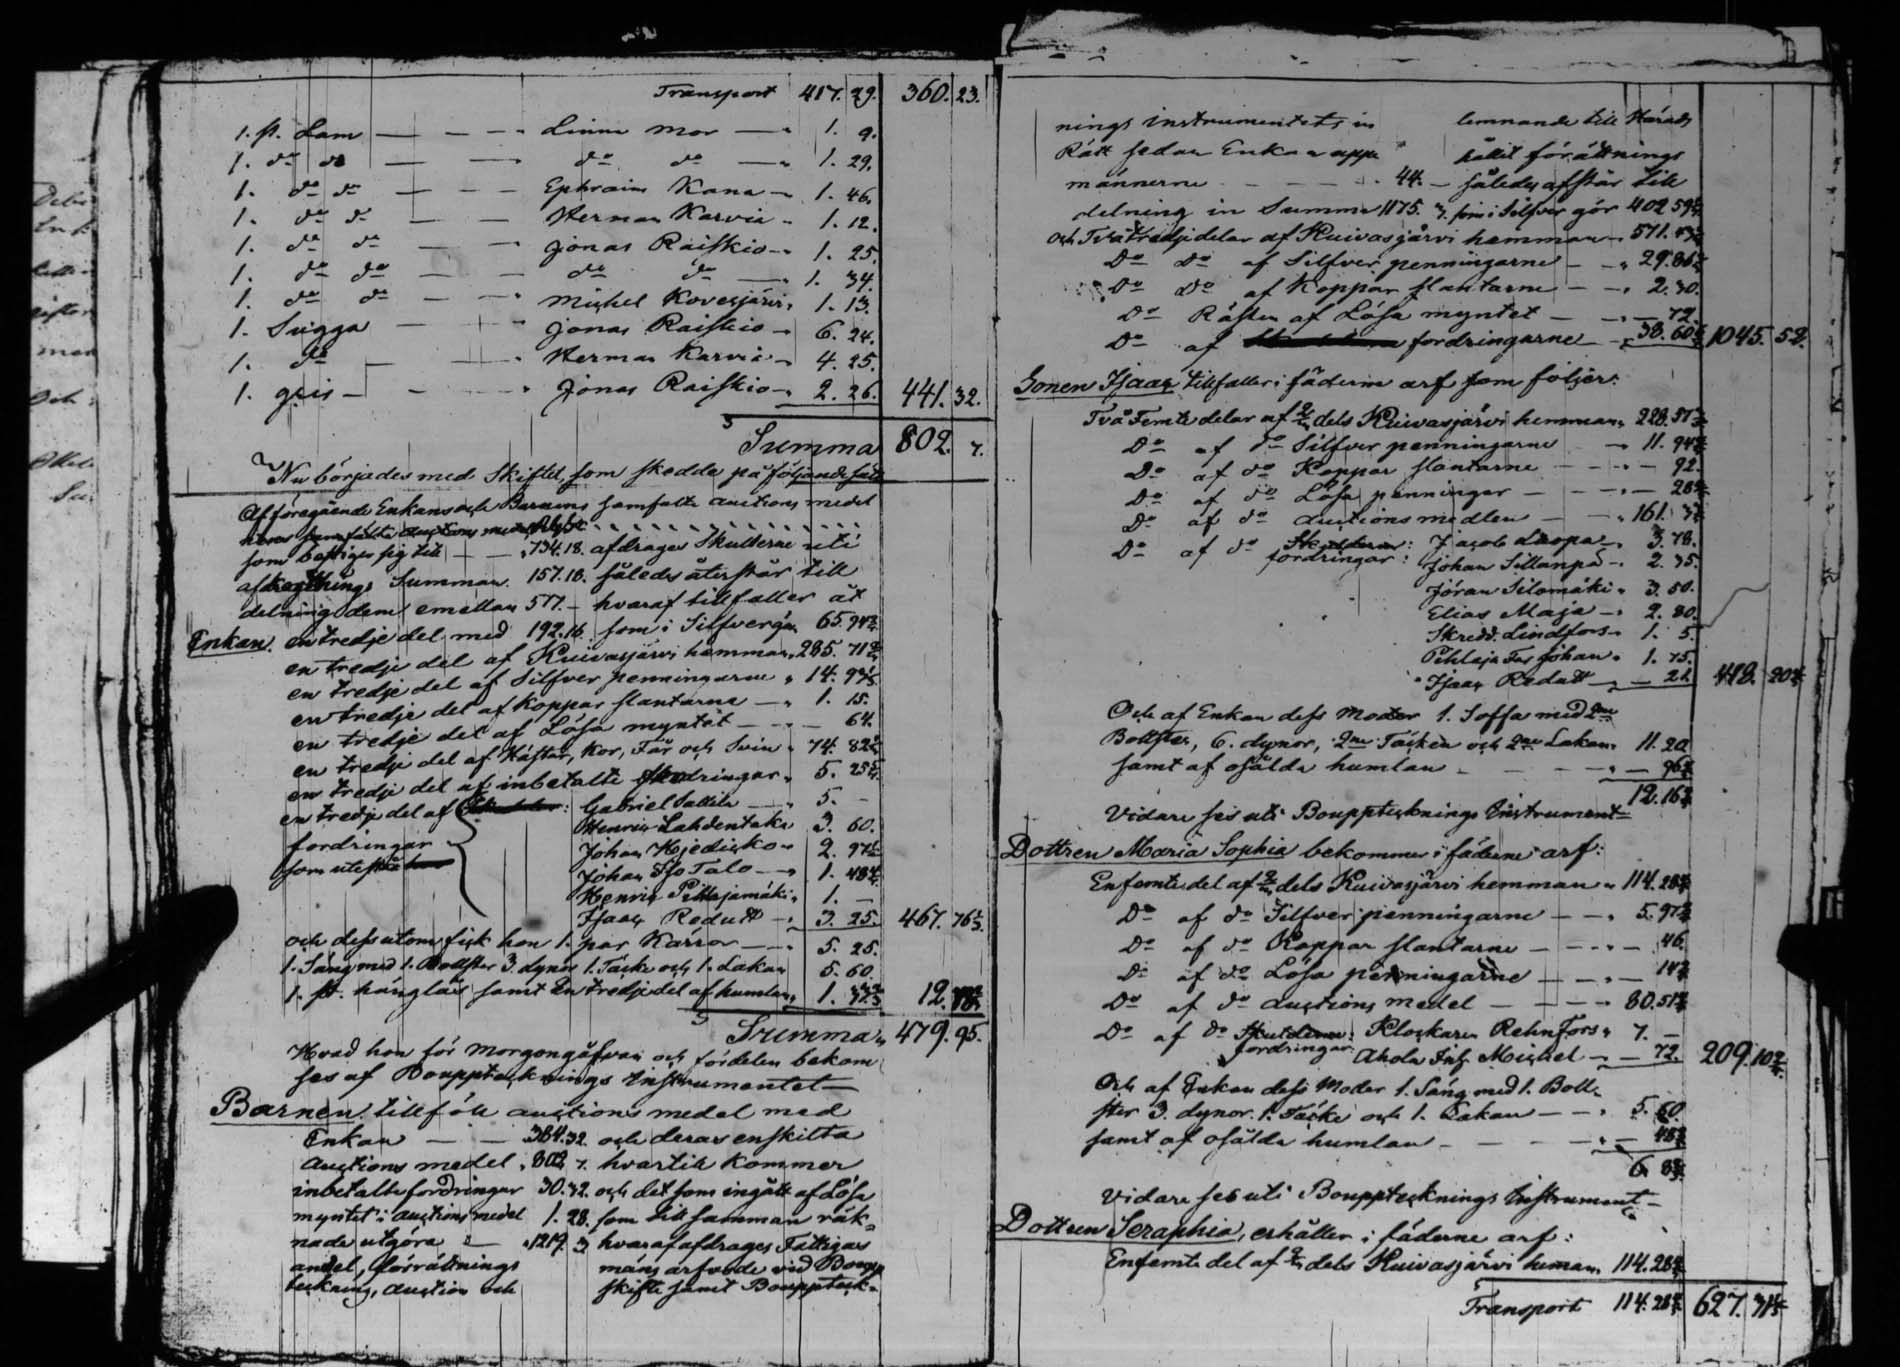 Transport 417. 29. 360. 23.
1. st. Lam — — — " Linna Mor — " 1. 9.
1. do do — — do do — " 1. 29.
1. do do — — — Ephraim Kana — " 1. 46.
1. do do — — Herman Karvia - 1. 12.
1. do do — — " Jonas Raiskio — " 1. 25.
1. do do — — do do — 1. 34.
1. do do — — " Michel Kovesjärvi " 1. 13.
1. Sugga — — " Jonas Raiskio — " 6. 24.
1. do — — " Herman Karvia — " 4. 25.
1. gris — — " Jonas Raiskio — " 2. 26. 441. 32.
Summa 802. 7.
Nu börjades med Skiftet, som skedde på följande sätt
Af föregående Enkans och Barnens samfälta auctions medel
som bestiger sig till — — " 734. 18. afdrages Skulderne uti
afdragnings Summan 157. 18. således återstår till
delning dem emellan 577. — hvaraf tillfaller åt
Enkan en tredje del med 192. 16. som i Silfver gör 65. 94
en tredje del af Kuivasjärvi hemman " 285. 71
en tredje del af Silfver penningarne " 14. 93
en tredje del af Koppar slantarne — " 1. 15.
en tredje del af Lösa myntet — " — 64.
en tredje del af Hästar, Kor, Får och Svin " 74. 82
en tredje del af inbetalte fordringar " 5. 25
en tredje del af Gabriel Sallila — " 5. —
Henric Lahdentaka 3. 60.
fordringar Johan Hjedisko " 2. 97
som utestå Johan Iso Talo — " 1. 48
Henric Pihlajamäki " 1. —
Isaac Redutt — " 3. 25. 467. 76
och dessutom fick hon 1. par Kärror — — " 5. 25.
1. Säng med 1. Bollster 3. dynor 1. Täcke och 1. Lakan 5. 60.
1. st. hänglås samt En tredje del af humlan " 1. 12.
Summa " 479. 95.
Hvad hon för Morgongåfvan och fördelen bekom
ses af Bouppteknings Instrumentet —
Barnen tillföll auctions medel med
Enkan — — 384. 32. och deras enskilta
Auctions medel " 802. 7. hvartill kommer
inbetalte fordringar 30. 32. och det som ingått af Lösa
myntet i auctions medel 1. 28. som till samman räk-
nade utgöra — " 1219. 3. hvaraf afdrages Fattigas
andel, förrättnings mäns arfvode vid Boupp
teckning, auction och skifte samt Bouppteck-
nings instrumentets in lemnande till Härads
Rätt sedan Enkan upp hållit förättnings
männerne — — — " 44. — således afstår till
delning in Summa 1175. 3. som i Silfver gör 402 59
och Två tredje delar af Kuivasjärvi hemman " 571. 43
Do Do af Silfver penningarne — " 29. 86
Do Do af Koppar slantarne — " 2. 30.
Do Råsten af Lösa myntet — " — 72.
Do af fordringarne — " 38. 60 1045. 52.
Sonen Isaac tillfaller i fäderne arf som följer:
Två Femte delar af 2/3 dels Kuivasjärvi hemman " 228. 57
Do af do Silfver penningarne — " 11. 94
Do af do Koppar slantarne — — " — 92.
Do af do Lösa penningar — — " — 28
Do af do auctions medlen — " 161. 3
Do af do Skulderne: Jacob Luopa — " 3. 78.
fordringar: Johan Sillanpä — " 2. 35.
Jöran Silomäki " 3. 50.
Elias Maja — " 2. 80.
Skredd. Lindfors — " 1. 5.
Pihlaja Fars Johan " 1. 75.
Isaac Redutt — " — 21. 418. 20
Och af Enkan dess Moder 1. Soffa med 2ne
Bollster, 6. dynor, 2ne Täcken och 2ne Lakan " 11. 20
samt af osålda humlan — — — " — 96
12. 16
Vidare ses uti Bouppteknings Instrument —
Dottren Maria Sophia bekommer i fäderne arf:
En femte del af 2/3 dels Kuivasjärvi hemman " 114. 28
Do af do Silfver penningarne — — " 5. 97
Do af do Koppar slantarne — — " — 46.
Do af do Lösa penningarne — — " — 14
Do af do auctions medel — — " 80. 51
Do af do Skulderne: Klockaren Rehnfors " 7. —
fordringar: Ahola Michel — " — 72. 209. 10
Och af Enkan dess Moder 1. Säng med 1. Boll-
ster 3. dynor. 1. Täcke och 1. Lakan — — " 5. 60.
samt af osålda humlan — — — " — 48
6. 8
Vidare ses uti Bouppteknings Instrument —
Dottren Seraphia, erhåller i fäderne arf:
En femte del af 2/3 dels Kuivasjärvi heman 114. 28
Transport 114. 28 627. 31